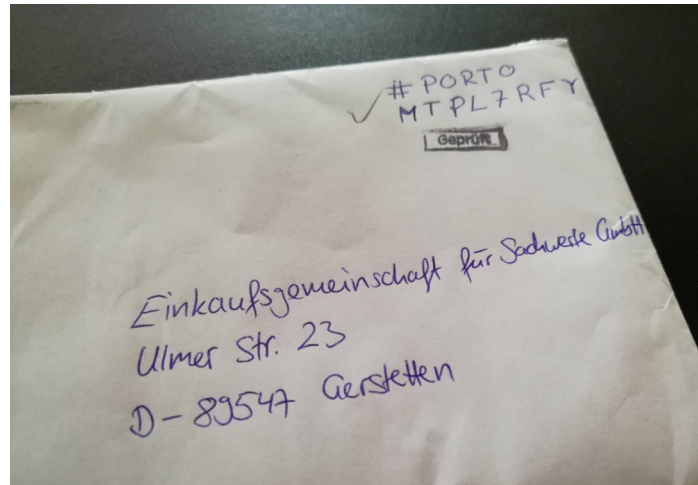 #PORTO
MTPL7RFY
Geprüft
Einkaufsgemeinschaft für Sachwerte GmbH
Ulmer Str. 23
D-89547 Gerstetten